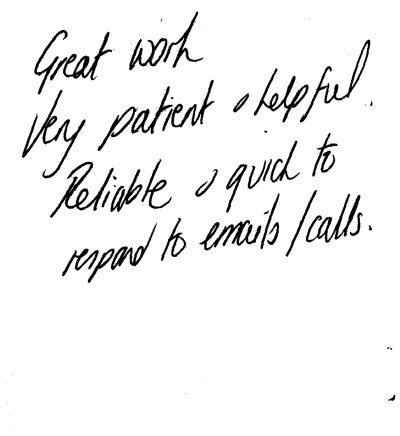 Great work
Very patient & helpful.
Reliable & quick to
respond to emails/calls.